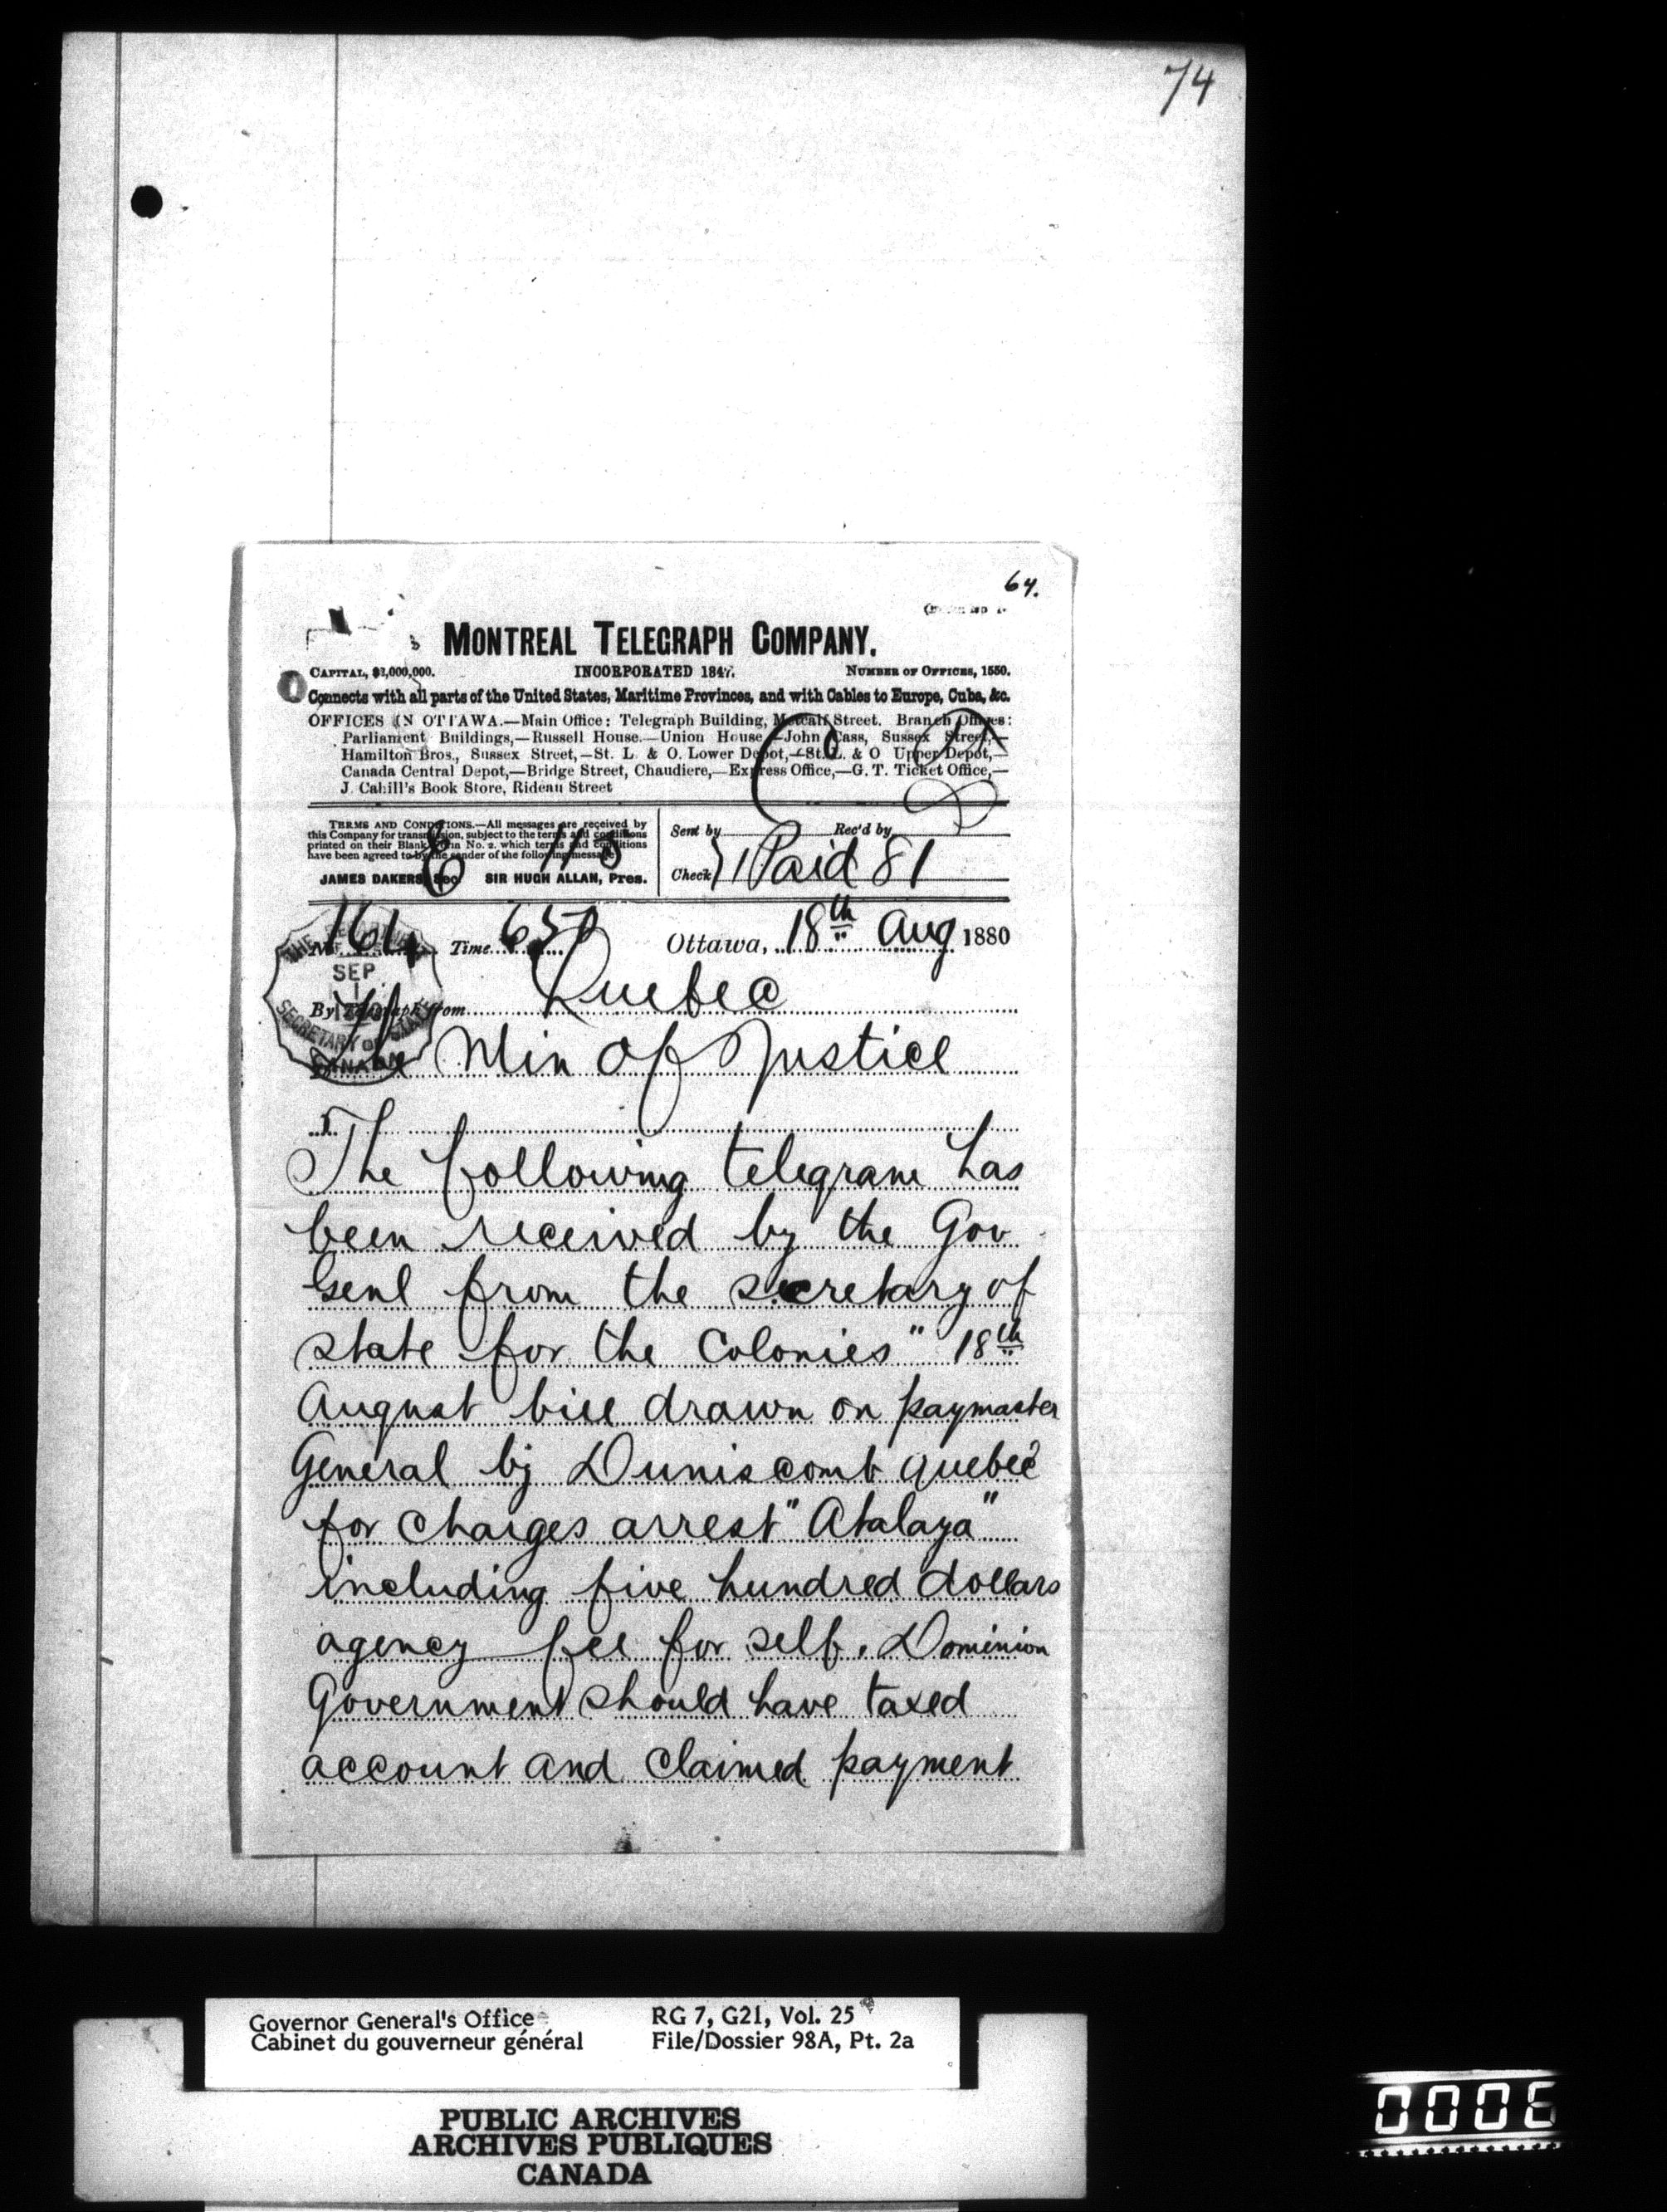 74
64.
MONTREAL TELEGRAPH COMPANY.
CAPITAL, $2,000,000. INCORPORATED 1847. NUMBER OF OFFICES, 1550.
Connects with all parts of the United States, Maritime Provinces, and with Cables to Europe, Cuba, &c.
OFFICES IN OTTAWA.—Main Office: Telegraph Building, Metcalf Street. Branch Offices:
Parliament Buildings,—Russell House.—Union House,—John Cass, Sussex Street,—
Hamilton Bros., Sussex Street,—St. L. & O. Lower Depot,—St. L. & O Upper Depot,—
Canada Central Depot,—Bridge Street, Chaudiere,—Express Office,—G. T. Ticket Office,—
J. Cahill's Book Store, Rideau Street
TERMS AND CONDITIONS.—All messages are received by
this Company for transmission, subject to the terms and conditions
printed on their Blank Form No. 2. which terms and conditions
have been agreed to by the sender of the following message
JAMES DAKERS, Sec SIR HUGH ALLAN, Pres.
Sent by Rec'd by
Check Paid 81
No. 164 Time 657 Ottawa, 18th Aug 1880
SEP
SECRETARY OF STATE
CANADA
By Telegraph from Quebec
Min of Justice
The following telegram has
been received by the Gov
Genl from the secretary of
state for the Colonies" 18th
August bill drawn on paymaster
General by Duniscomb Quebec
for charges arrest "Atalaya"
including five hundred dollars
agency fee for self. Dominion
Government should have taxed
account and claimed payment
Governor General's Office RG 7, G21, Vol. 25
Cabinet du gouverneur général File/Dossier 98A, Pt. 2a
PUBLIC ARCHIVES
ARCHIVES PUBLIQUES
CANADA
0006